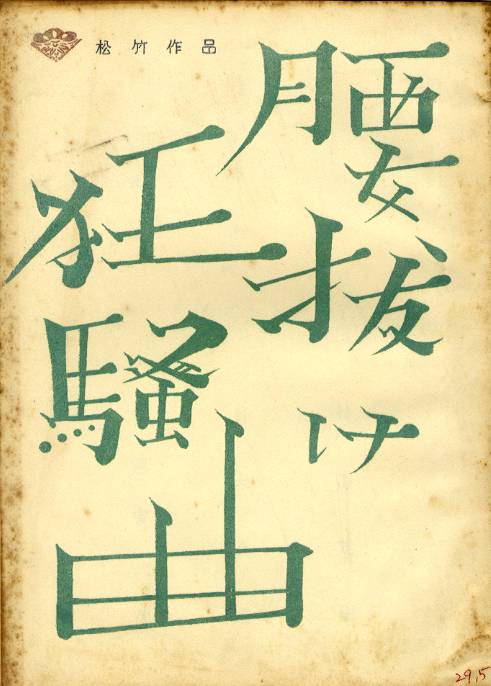 松竹作品
腰抜け
狂騒曲
29,5